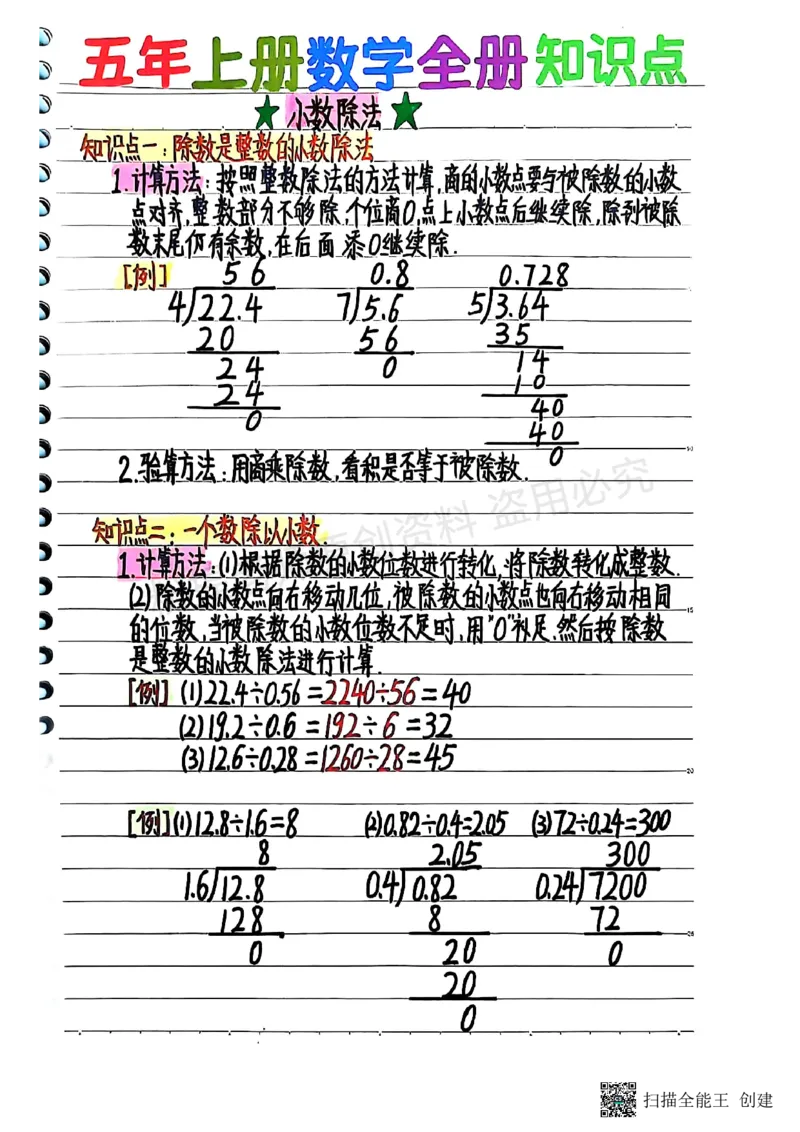 五年上册数学全册知识点
★小数除法★
知识点一:除数是整数的小数除法
1.计算方法:按照整数除法的方法计算,商的小数点要与被除数的小数
点对齐,整数部分不够除,个位商0,点上小数点后继续除,除到被除
数末尾仍有余数,在后面添0继续除.
[例] 56 0.8 0.728
4)22.4 7)5.6 5)3.64
20 56 35
24 0 14
24 10
0 40
40
0
2.验算方法:用商乘除数,看积是否等于被除数.
创资料 盗用必究
知识点二:一个数除以小数.
1.计算方法:(1)根据除数的小数位数进行转化,将除数转化成整数.
(2)除数的小数点向右移动几位,被除数的小数点也向右移动相同
的位数,当被除数的小数位数不足时,用"0"补足.然后按除数
是整数的小数除法进行计算.
[例] (1)22.4÷0.56=2240÷56=40
(2)19.2÷0.6=192÷6=32
(3)12.6÷0.28=1260÷28=45
[例](1)12.8÷1.6=8 (2)0.82÷0.4=2.05 (3)72÷0.24=300
8 2.05 300
1.6)12.8 0.4)0.82 0.24)7200
128 8 72
0 20 0
20
0
扫描全能王 创建